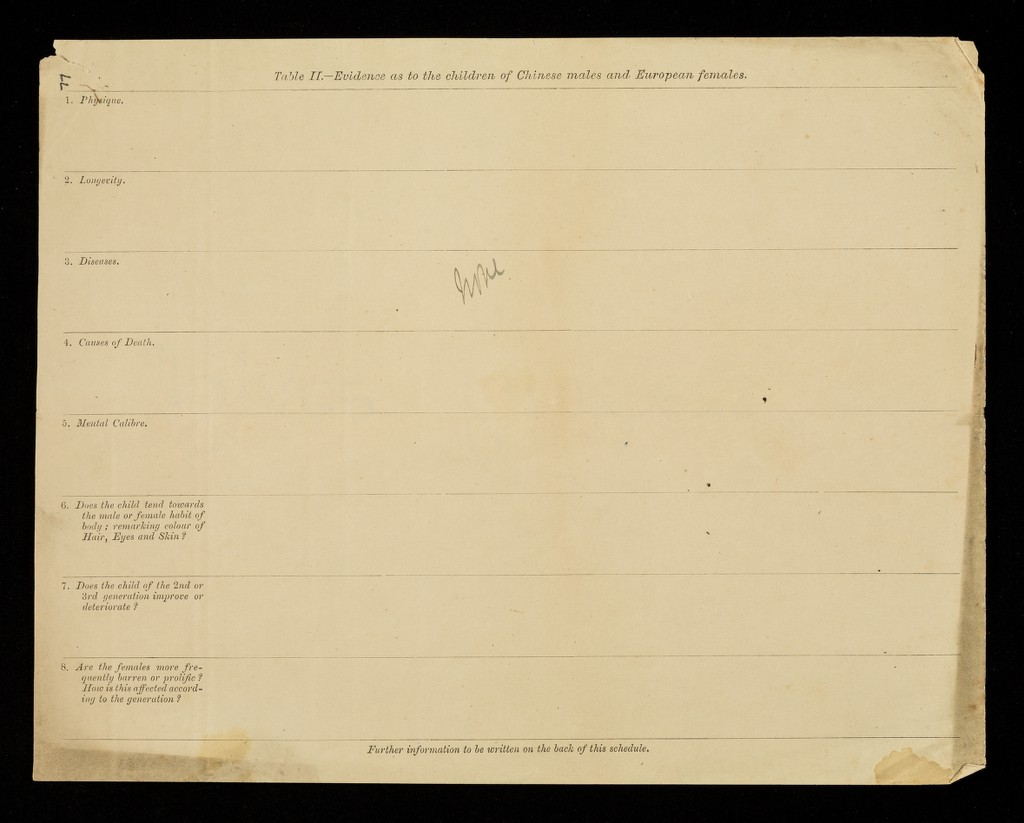 77
Table II.—Evidence as to the children of Chinese males and European females.
1. Physique.
2. Longevity.
3. Diseases.
4. Causes of Death.
5. Mental Calibre.
6. Does the child tend towards
the male or female habit of
body ; remarking colour of
Hair, Eyes and Skin ?
7. Does the child of the 2nd or
3rd generation improve or
deteriorate ?
8. Are the females more fre-
quently barren or prolific ?
How is this affected accord-
ing to the generation ?
Further information to be written on the back of this schedule.